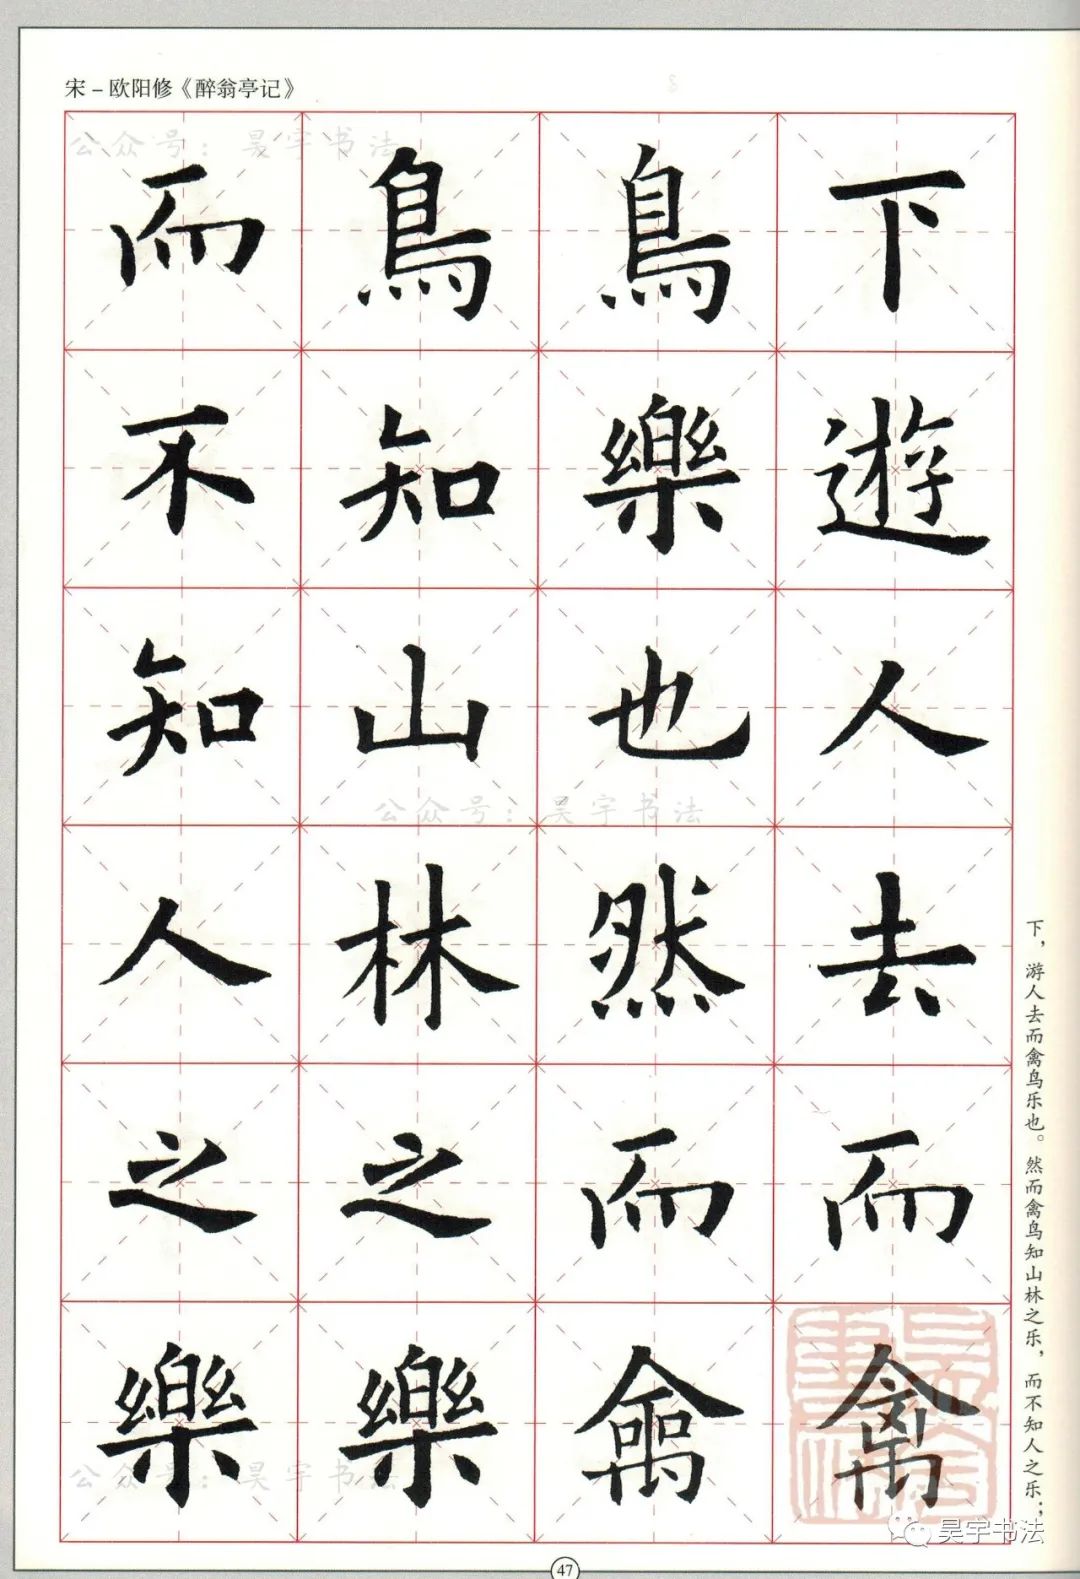 宋－欧阳修《醉翁亭记》
下遊人去而禽
鳥樂也然而禽
鳥知山林之樂
而不知人之樂
下，游人去而禽鸟乐也。然而禽鸟知山林之乐，而不知人之乐；
公众号：昊宇书法
公众号：昊宇书法
公众号：昊宇书法
昊宇书法
昊宇书法
47